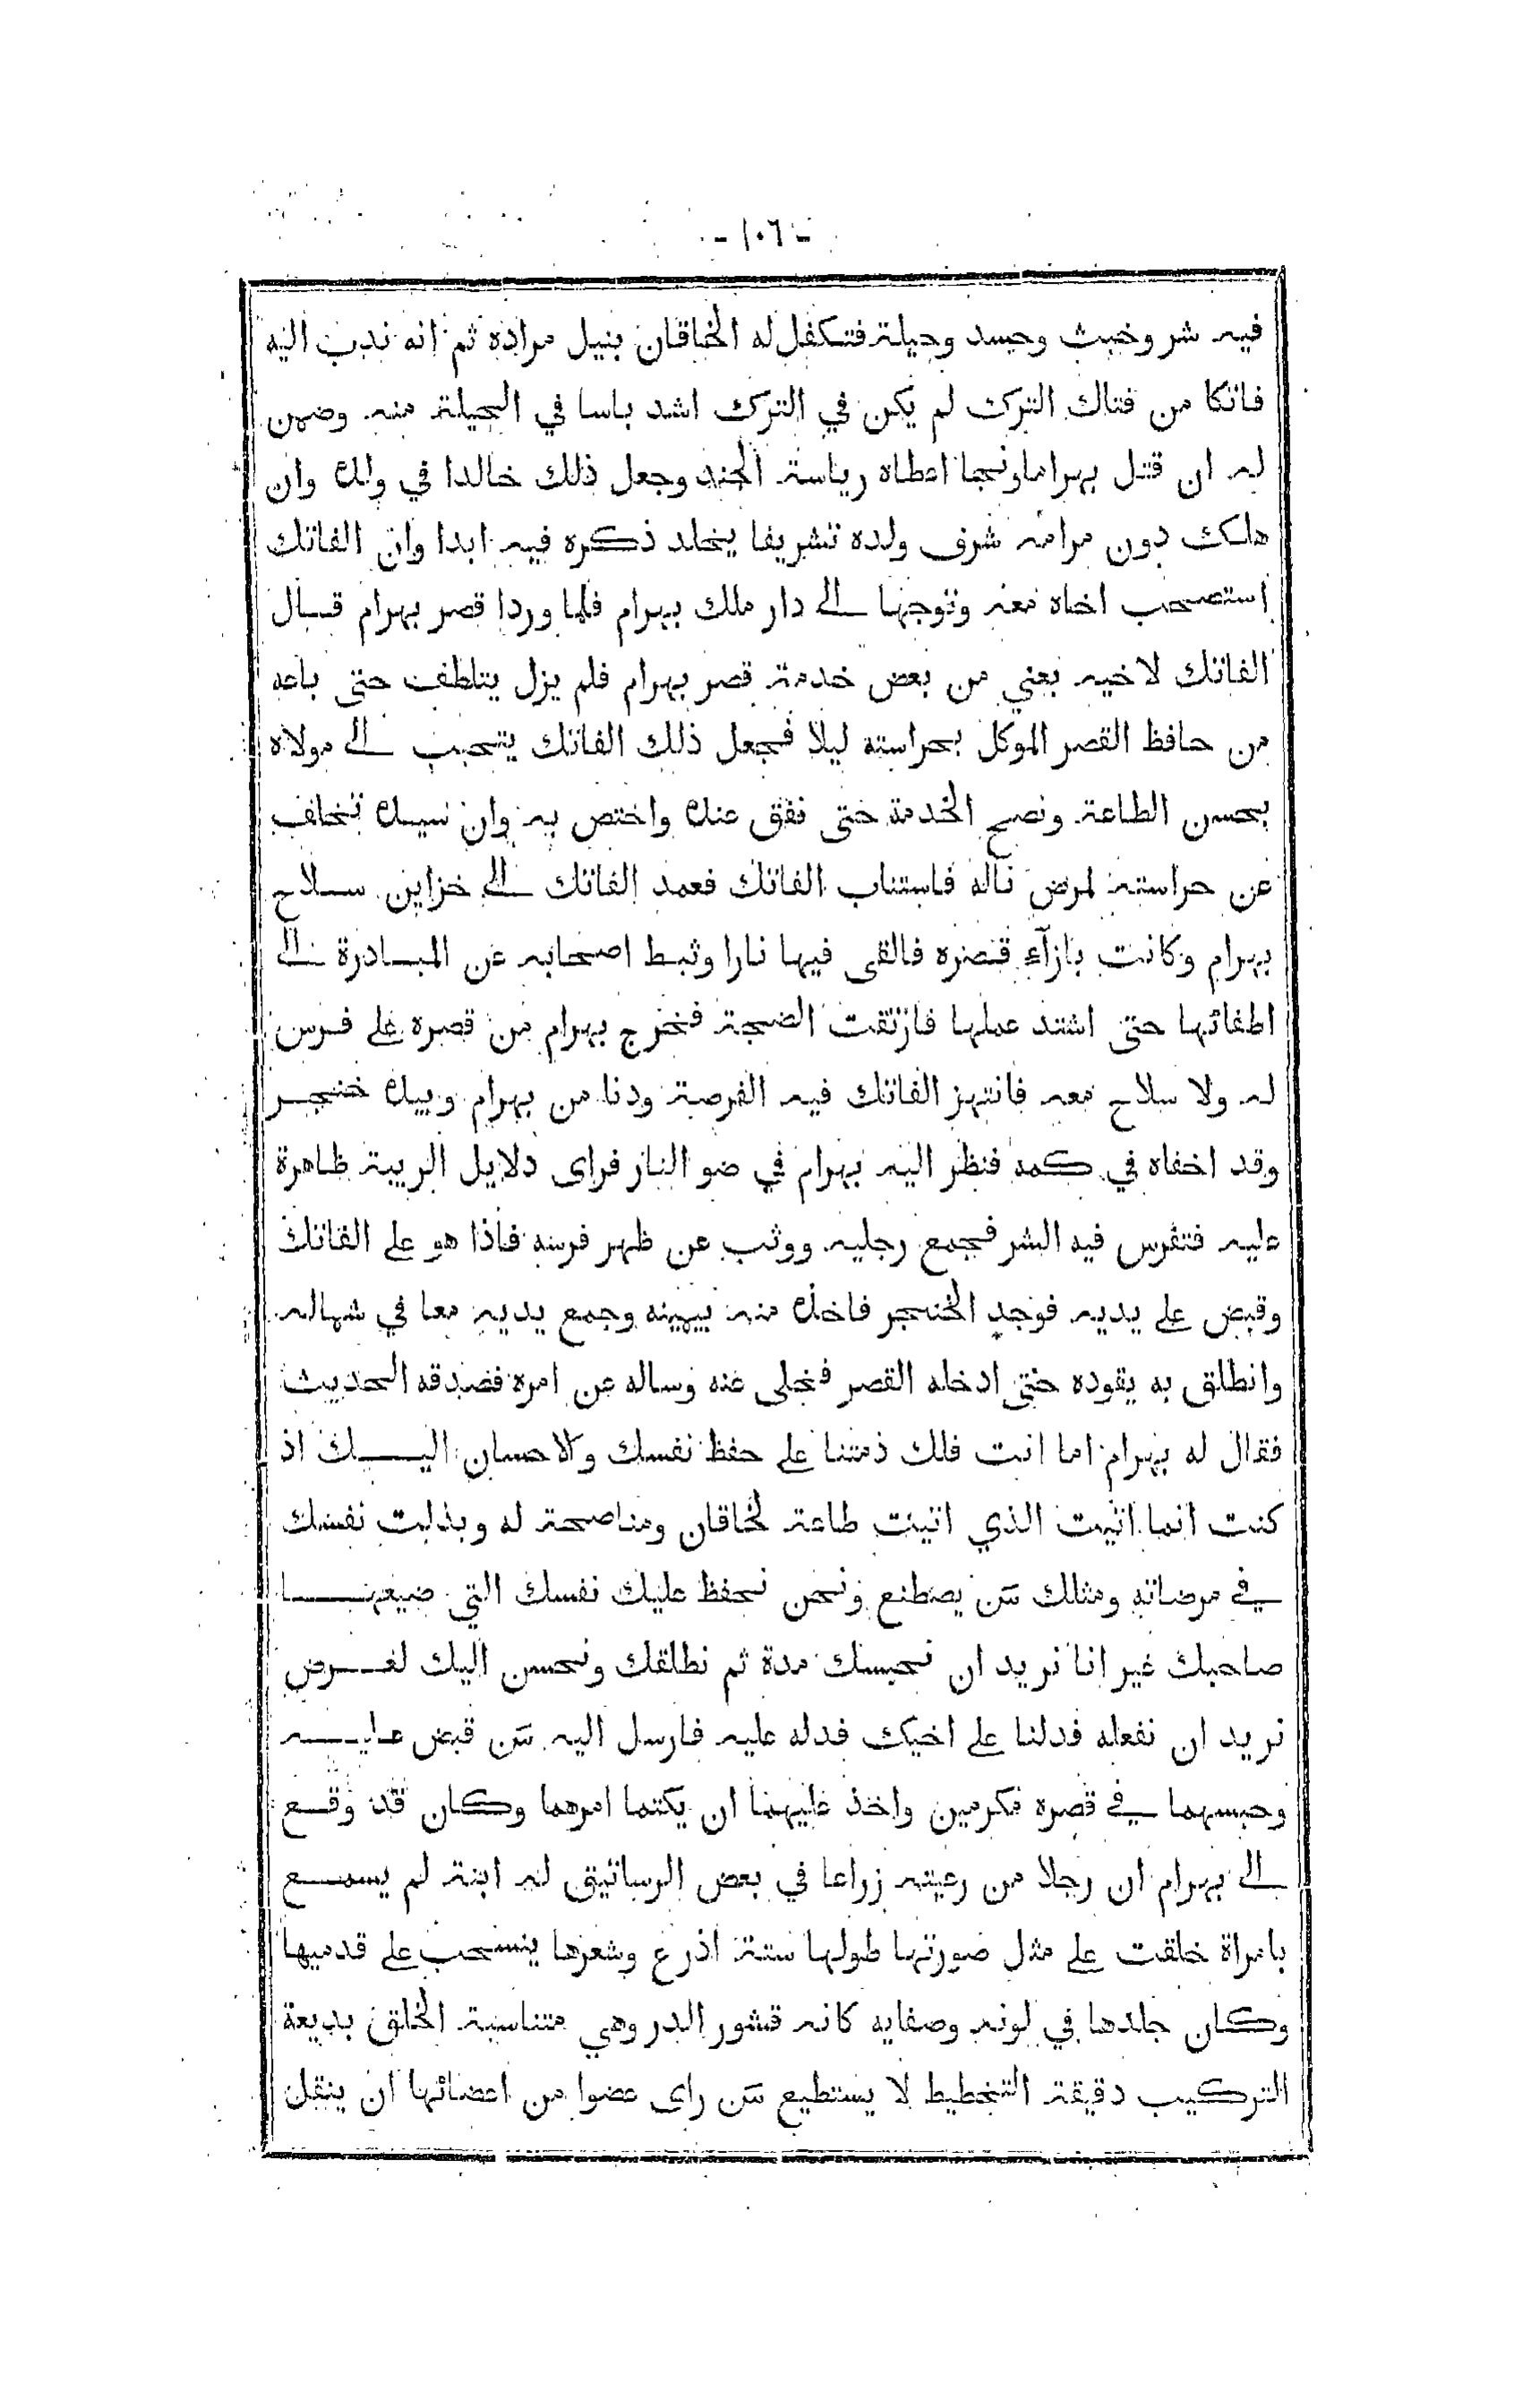 - ١٠٦ -
فيه شر وخبث وحسد وحيلة فتكفل له الخاقان بنيل مراده ثم انه ندب اليه
فاتكا من فتاك الترك لم يكن في الترك اشد باسا في الحيلة منه وضمن
له ان قتل بهراما ونجا اعطاه رياسة الجند وجعل ذلك خالدا في ولده وان
هلك دون مرامه شرف ولده تشريفا يخلد ذكره فيه ابدا وان الفاتك
استصحب اخاه معه وتوجها الى دار ملك بهرام فلما وردا قصر بهرام قال
الفاتك لاخيه بعني من بعض خدمة قصر بهرام فلم يزل يتلطف حتى باعه
من حافظ القصر الموكل بحراسته ليلا فجعل ذلك الفاتك يتحبب الى مولاه
بحسن الطاعة ونصح الخدمة حتى نفق عنده واختص به وان سيده تخلف
عن حراسته لمرض ناله فاستناب الفاتك فعمد الفاتك الى خزاين سلاح
بهرام وكانت بازآء قصره فالقى فيها نارا وثبط اصحابه عن المبادرة الى
اطفائها حتى اشتد عملها فارتقت الضجة فخرج بهرام من قصره على فرس
له ولا سلاح معه فانتهز الفاتك فيه الفرصة ودنا من بهرام وبيده خنجر
وقد اخفاه في كمه فنظر اليه بهرام في ضو النار فراى دلايل الريبة ظاهرة
عليه فتفرس فيه الشر فجمع رجليه ووثب عن ظهر فرسه فاذا هو على الفاتك
وقبض على يديه فوجد الخنجر فاخذه منه بيمينه وجمع يديه معا في شماله
وانطلق به يقوده حتى ادخله القصر فخلى عنه وساله عن امره فصدقه الحديث
فقال له بهرام اما انت فلك ذمتنا على حفظ نفسك والاحسان اليك اذ
كنت انما اتيت الذي اتيت طاعة لخاقان ومناصحة له وبذلت نفسك
في مرضاته ومثلك من يصطنع ونحن نحفظ عليك نفسك التي ضيعها
صاحبك غير انا نريد ان نحبسك مدة ثم نطلقك ونحسن اليك لغرض
نريد ان نفعله فدلنا على اخيك فدله عليه فارسل اليه من قبض عليه
وحبسهما في قصره مكرمين واخذ عليهما ان يكتما امرهما وكان قد وقع
الى بهرام ان رجلا من رعيته زراعا في بعض الرساتيق له ابنة لم يسمع
بامراة خلقت على مثل صورتها طولها ستة اذرع وشعرها ينسحب على قدميها
وكان جلدها في لونه وصفايه كانه قشور الدر وهي متناسبة الخلق بديعة
التركيب دقيقة التخطيط لا يستطيع من راى عضوا من اعضائها ان ينقل